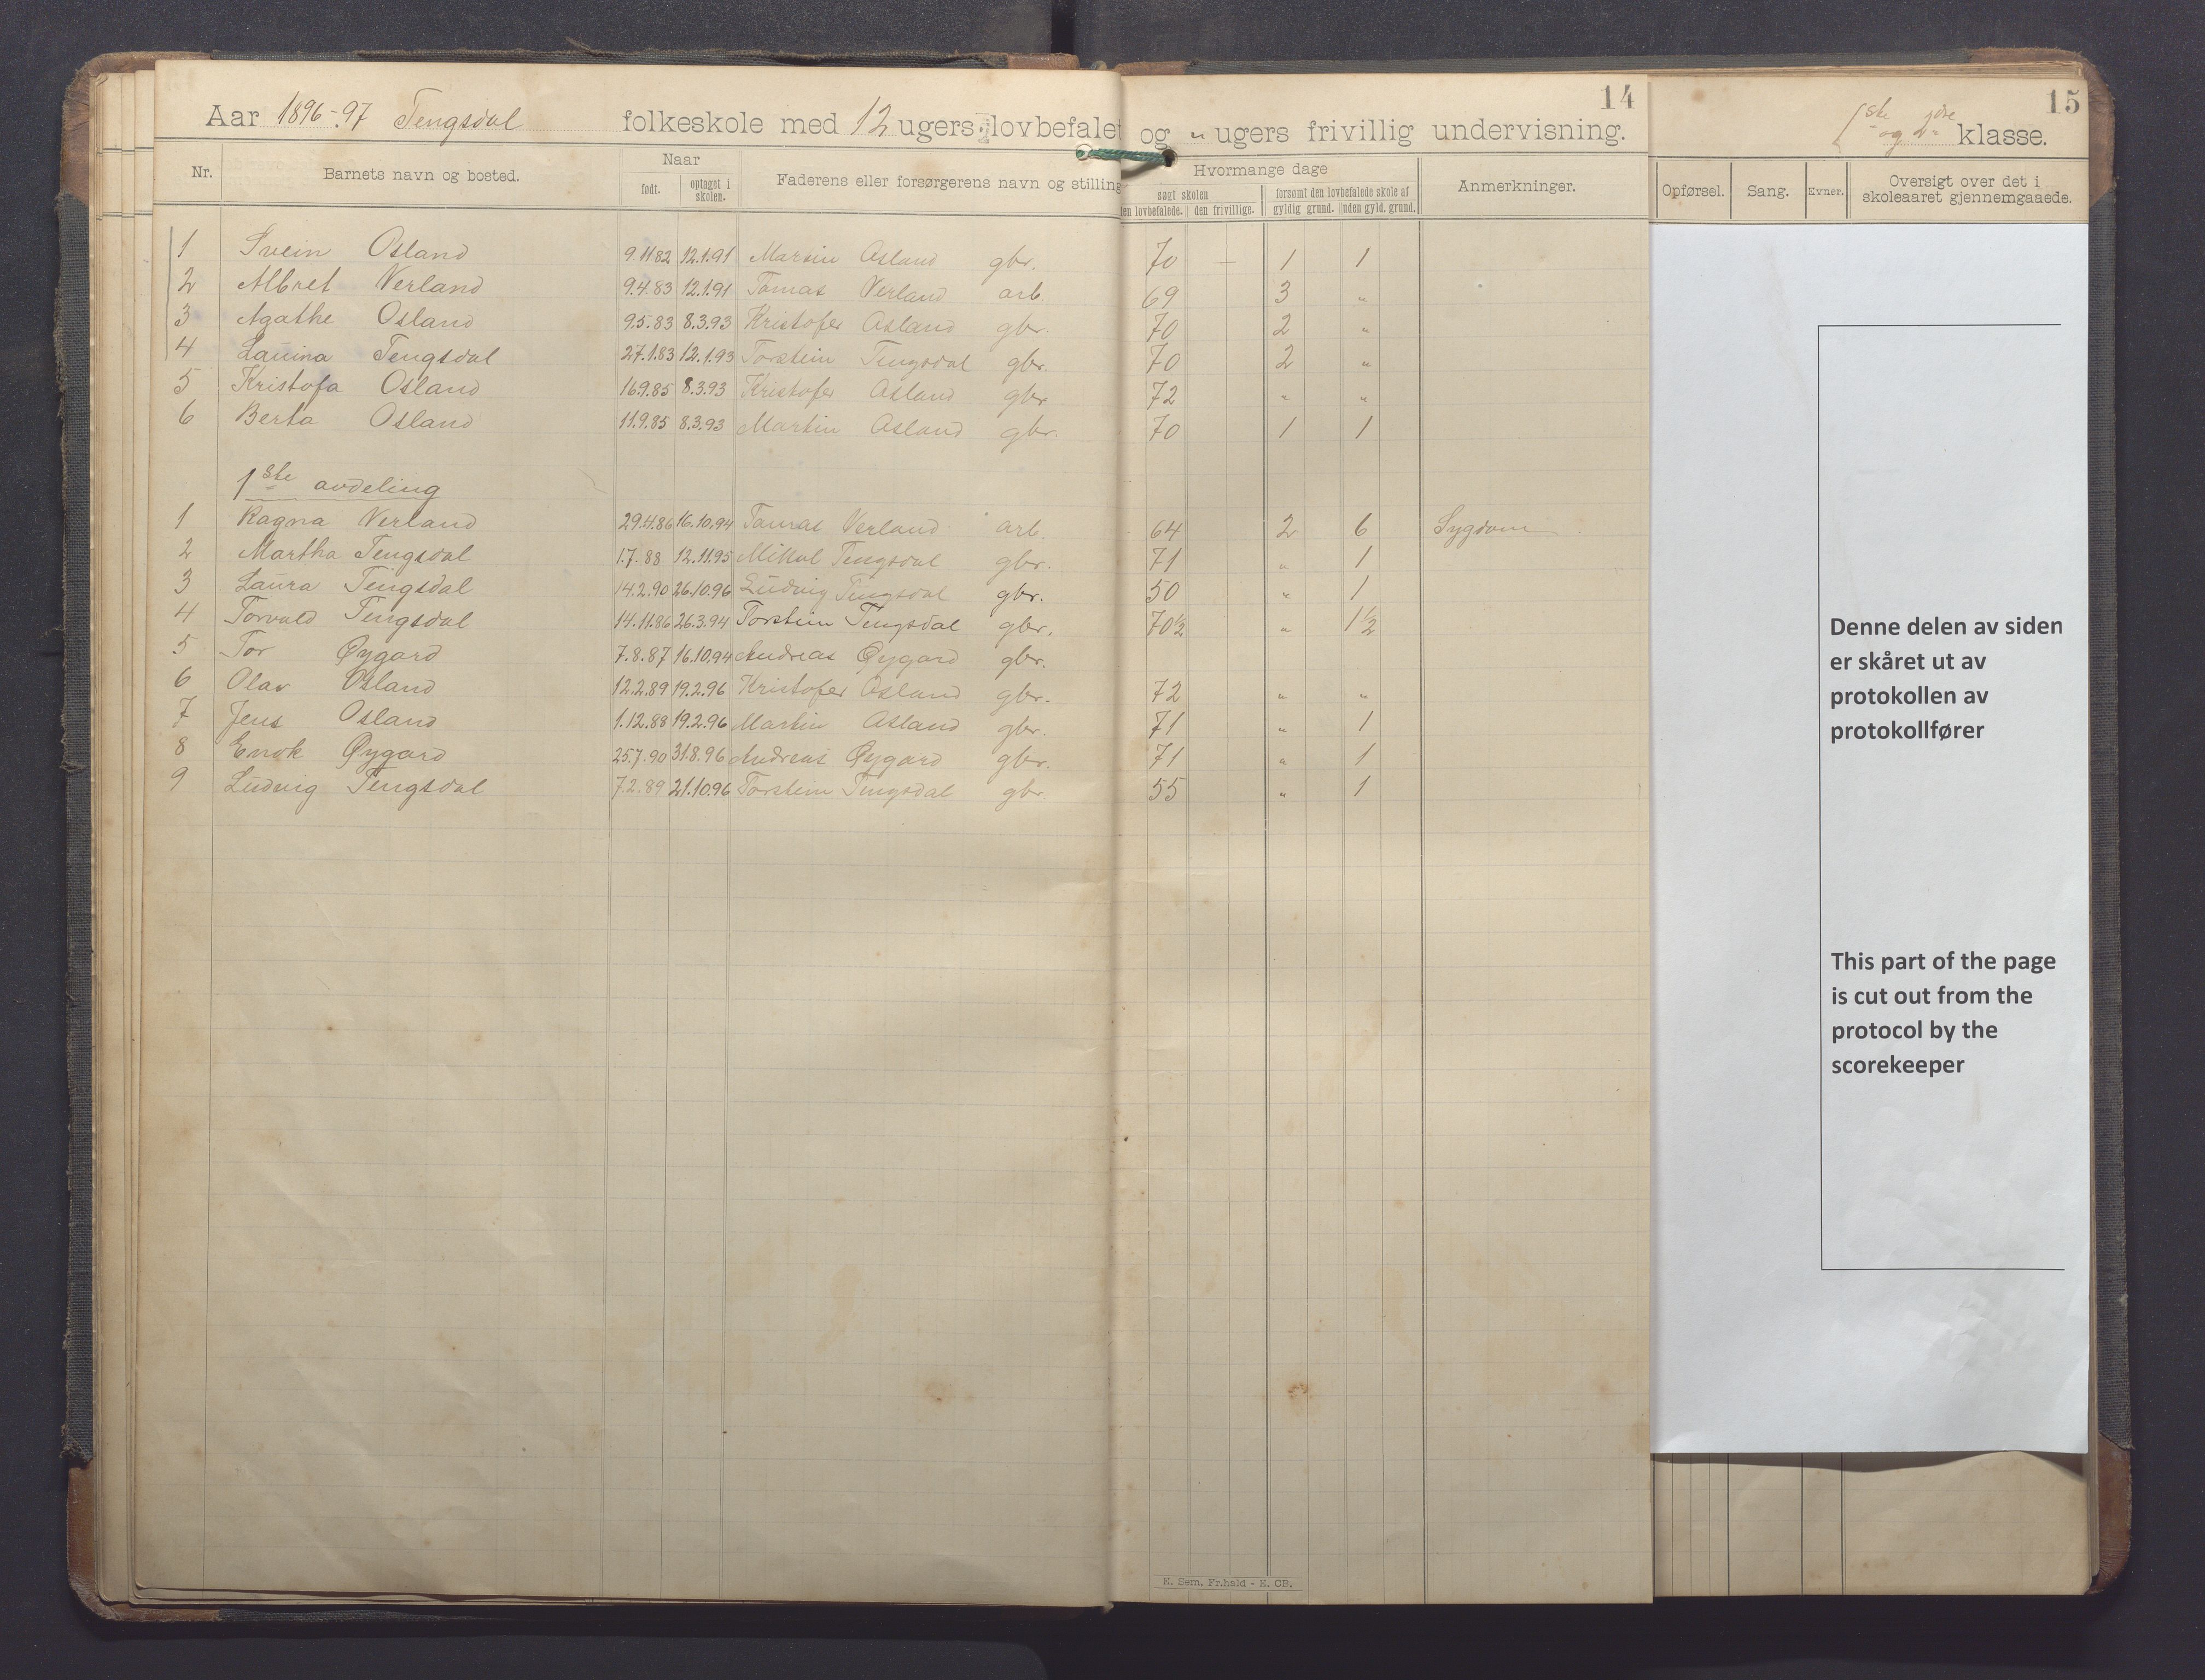 14
15
Aar 1896-97 Tengsdal folkeskole med 12 ugers lovbefalet og " ugers frivillig undervisning.
1ste og 2dre klasse.
Nr. Barnets navn og bosted. Naar født. optaget i skolen. Faderens eller forsørgerens navn og stilling Hvormange dage søgt skolen den lovbefalede. den frivillige. forsømt den lovbefalede skole af gyldig grund. uden gyld. grund. Anmerkninger. Opførsel. Sang. Evner. Oversigt over det i skoleaaret gjennemgaaede.
1 Svein Osland 9.11.82 12.1.91 Martin Osland gbr. 70 — 1 1
2 Albret Verland 9.4.83 12.1.91 Tomas Verland arb. 69 3 "
3 Agathe Osland 9.5.83 8.3.93 Kristofer Osland gbr. 70 2 "
4 Laurina Tengsdal 27.1.83 12.1.93 Torstein Tengsdal gbr. 70 2 "
5 Kristofa Osland 16.9.85 8.3.93 Kristofer Osland gbr 72 " "
6 Berta Osland 11.9.85 8.3.93 Martin Osland gbr. 70 1 1
1ste avdeling
1 Ragna Verland 29.4.86 16.10.94 Tomas Verland arb. 64 2 6 Sygdom
2 Martha Tengsdal 1.7.88 12.11.95 Mikkal Tengsdal gbr. 71 " 1
3 Laura Tengsdal 14.2.90 26.10.96 Ludvig Tengsdal gbr. 50 " 1
4 Torvald Tengsdal 14.11.86 26.3.94 Torstein Tengsdal gbr. 70½ " 1½
5 Tor Øygard 7.8.87 16.10.94 Andreas Øygard gbr.
6 Olav Osland 12.2.89 19.2.96 Kristofer Osland gbr. 72 " "
7 Jens Osland 1.12.88 19.2.96 Martin Osland gbr. 71 " 1
8 Enok Øygard 25.7.90 31.8.96 Andreas Øygard gbr. 71 " 1
9 Ludvig Tengsdal 7.2.89 21.10.96 Torstein Tengsdal gbr 55 " 1
Denne delen av siden
er skåret ut av
protokollen av
protokollfører
This part of the page
is cut out from the
protocol by the
scorekeeper
E. Sem. Fr.hald - E. CB.